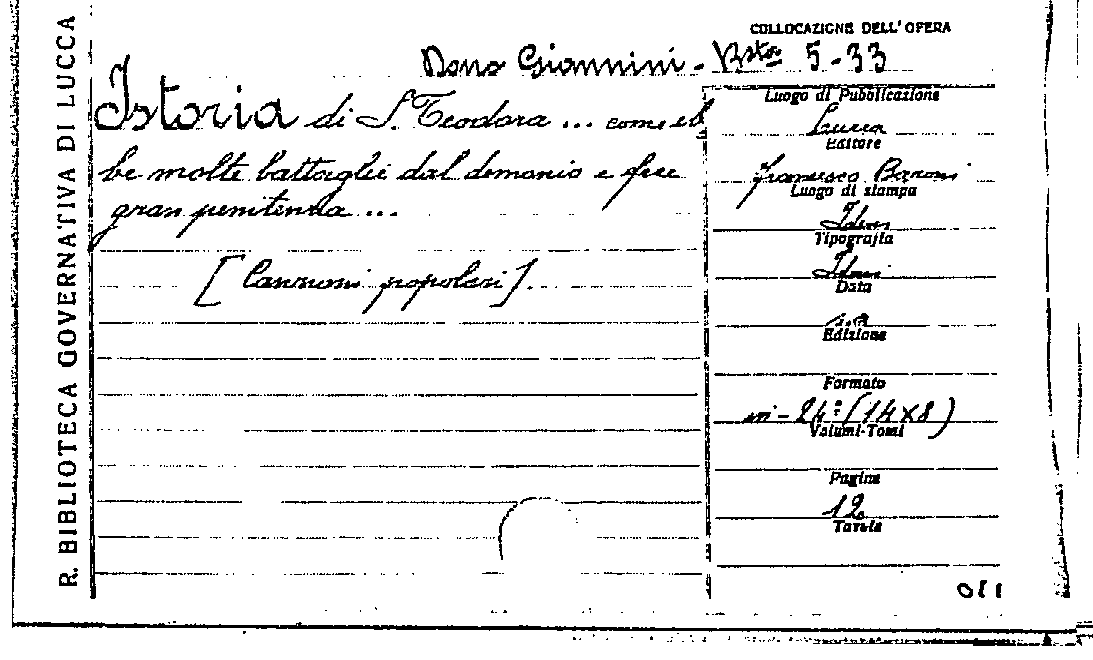 R. BIBLIOTECA GOVERNATIVA DI LUCCA
COLLOCAZIONE DELL'OPERA
Dono Giannini - Bsta 5-33
Istoria di S. Teodora ... come eb
be molte battaglie dal demonio e fece
gran penitenza ...
[Canzoni popolari].
Luogo di Pubblicazione
Lucca
Editore
Francesco Baroni
Luogo di stampa
Idem
Tipografia
Idem
Data
s.a
Edizione
Formato
in-24º (14X8)
Volumi-Tomi
Pagine
12
Tavole